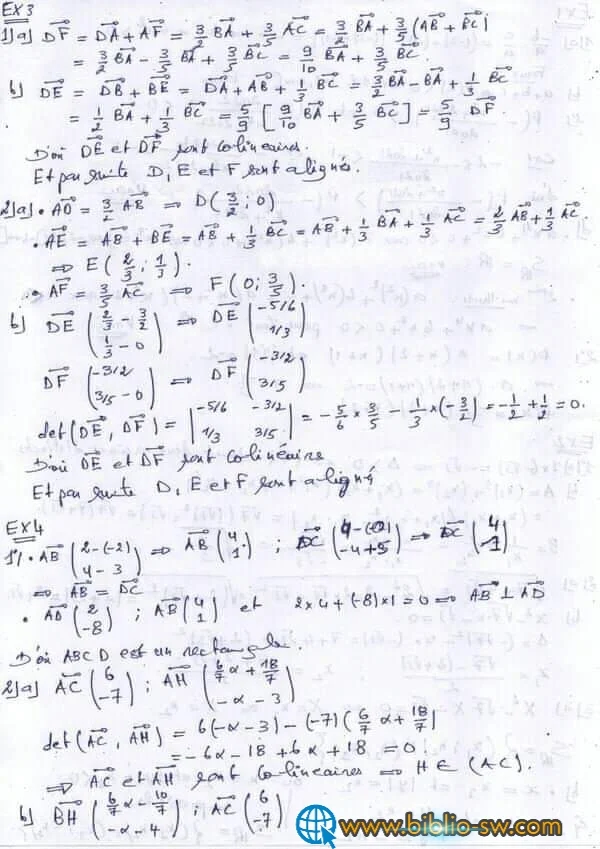 EX3
1)a) DF = DA + AF = 3/2 BA + 3/5 AC = 3/2 BA + 3/5 (AB + BC)
= 3/2 BA - 3/5 BA + 3/5 BC = 9/10 BA + 3/5 BC.
b) DE = DB + BE = DA + AB + 1/3 BC = 3/2 BA - BA + 1/3 BC
= 1/2 BA + 1/3 BC = 5/9 [9/10 BA + 3/5 BC] = 5/9 DF
D'où DE et DF sont colineaires.
Et par suite D, E et F sont alignés.
2)a) • AD = 3/2 AB ⇒ D(3/2 ; 0)
• AE = AB + BE = AB + 1/3 BC = AB + 1/3 BA + 1/3 AC = 2/3 AB + 1/3 AC.
⇒ E(2/3 ; 1/3).
• AF = 3/5 AC ⇒ F(0; 3/5)
b) DE (2/3 - 3/2 ; 1/3 - 0) ⇒ DE (-5/6 ; 1/3)
DF (-3/2 ; 3/5 - 0) ⇒ DF (-3/2 ; 3/5)
det(DE, DF) = |-5/6 -3/2 ; 1/3 3/5| = -5/6 × 3/5 - 1/3 × (-3/2) = -1/2 + 1/2 = 0.
D'où DE et DF sont colinéaires
Et par suite D, E et F sont aligné
EX4
1) • AB (2-(-2) ; 4-3) ⇒ AB (4 ; 1) ; DC (4-(0) ; -4+5) ⇒ DC (4 ; 1)
⇒ AB = DC
• AD (2 ; -8) ; AB (4 ; 1) et 2×4+(-8)×1=0 ⇒ AB ⊥ AD
D'où ABCD est un rectangle.
2)a) AC (6 ; -7) ; AH (6/7 α + 18/7 ; -α - 3)
det(AC, AH) = 6(-α - 3) - (-7)(6/7 α + 18/7)
= -6α - 18 + 6α + 18 = 0
⇒ AC et AH sont colineaires ⇒ H ∈ (AC).
b) BH (6/7 α - 10/7 ; -α - 4) ; AC (6 ; -7)
www.biblio-sw.com